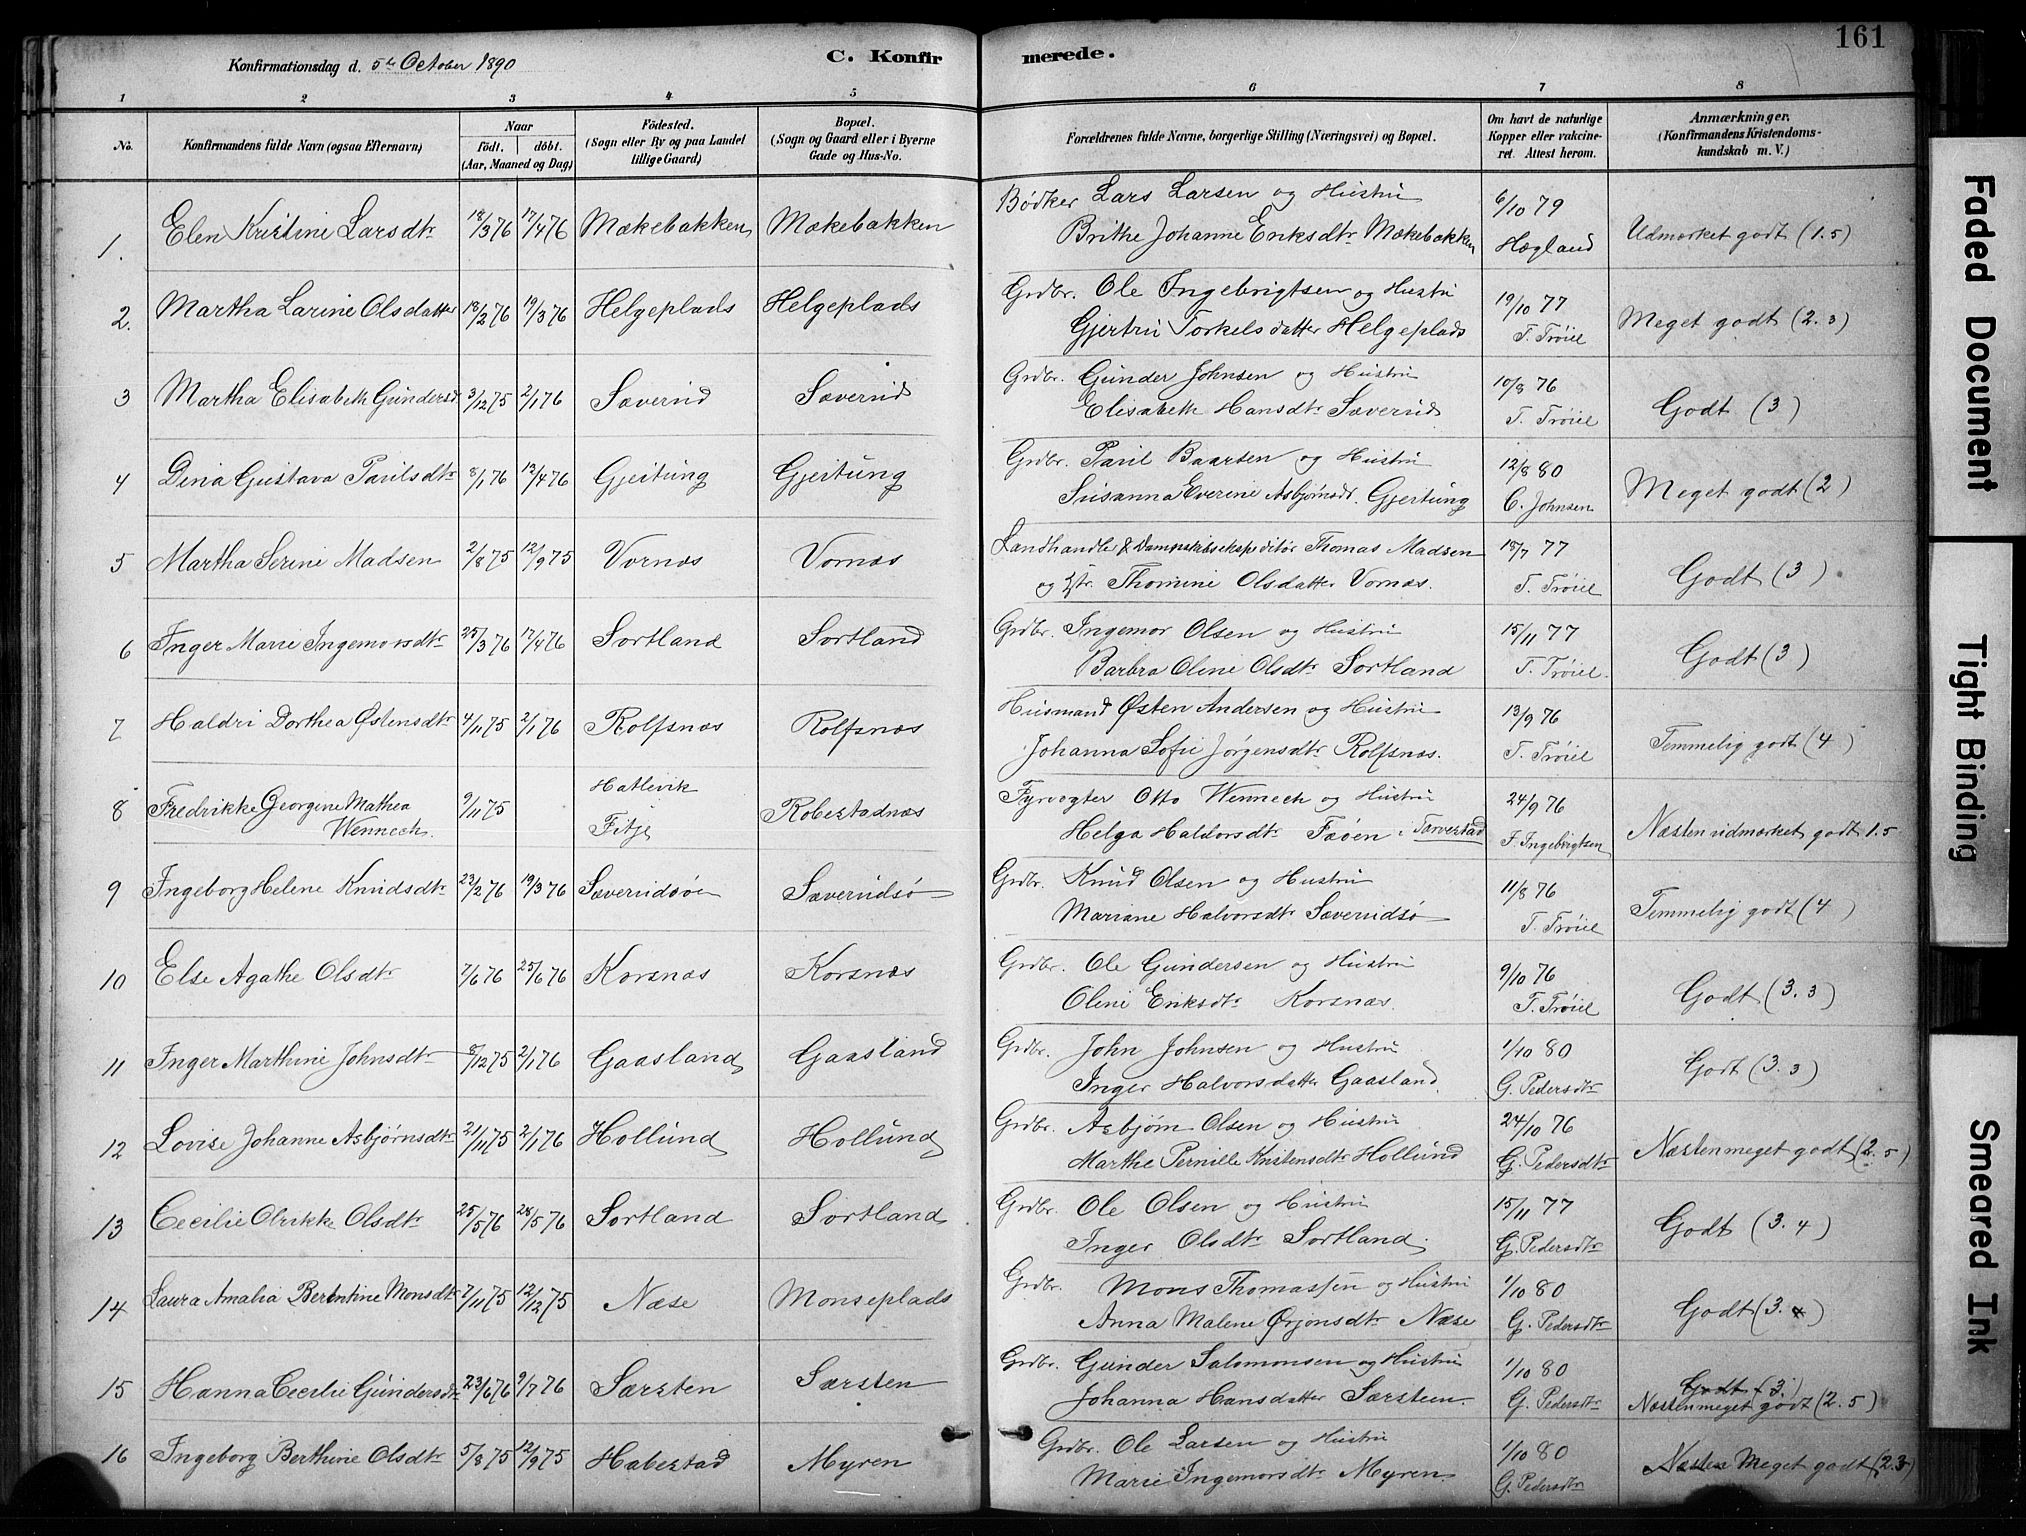 161
Konfirmationsdag d. 5te October 1890
C. Konfirmerede.
1 2 3 4 5 6 7 8
No.
Konfirmandens fulde Navn (ogsaa Efternavn)
Naar
födt. döbt.
(Aar, Maaned og Dag)
Födested.
(Sogn eller By og paa Landet tillige Gaard)
Bopæl.
(Sogn og Gaard eller i Byerne Gade og Hus-No.
Forældrenes fulde Navne, borgerlige Stilling (Næringsvei) og Bopæl.
Om havt de naturlige Kopper eller vakcineret. Attest herom.
Anmærkninger.
(Konfirmandens Kristendomskundskab m. V.)
1. Elen Kristine Larsdtr 18/3 76 17/4 76 Mækebakken Mækebakken Bødker Lars Larsen og Hustru 6/10 79
Brithe Johanne Eriksdtr Mækebakken Hogland Udmærket godt (1.5)
2. Martha Larine Olsdatter 18/2 76 19/3 76 Helgeplads Helgeplads Grdbr. Ole Ingebrigtsen og Hustru 19/10 77
Gjertru Torkelsdatter Helgeplads T. Trøiel Meget godt (2.3)
3 Martha Elisabeth Gundersd 3/12 75 2/1 76 Sæverud Sæverud Grdbr. Gunder Johnsen og Hustru 10/8 76
Elisabeth Hansdtr Sæverud T. Trøiel Godt (3)
4 Dina Gustava Paulsdtr 8/1 76 12/4 76 Gjeitung Gjeitung Grdbr. Paul Baarsen og Hustru 12/8 80
Susanna Everine Asbjønsdt. Gjertung C. Johnsen Meget godt (2)
5 Martha Serine Madsen 2/8 75 12/9 75 Vornæs Vornæs Landhandler & Dampskibsekspeditør Thomas Madsen 18/7 77
og Htr. Thomine Olsdatter Vornæs. T. Trøiel Godt (3)
6 Inger Marie Ingemorsdtr 25/3 76 17/4 76 Sortland Sortland Grdbr. Ingemor Olsen og Hustru 15/11 77
Barbra Oline Olsdtr Sortland T. Trøiel. Godt (3)
7 Haldri Dorthea Østensdtr 4/11 75 2/1 76 Rolfsnæs Rolfsnæs Husmand Østen Andersen og Hustru 13/9 76
Johanna Sofie Jørgensdtr Rolfsnæs. T. Trøiel Temmelig godt (4)
8 Fredrikke Georgine Mathea 9/11 75 Hatlevik Robestadnæs Fyrvogter Otto Wennech og Hustru 24/9 76
Wennech. Fitje Helga Haldorsdtr Føøen i Torvestad F. Ingebrigtsen Næsten udmærket godt 1.5
9 Ingeborg Helene Knudsdtr 23/2 76 19/3 76 Sæverudsøe Sæverudsø Grdbr. Knud Olsen og Hustru 11/8 76
Mariane Halvorsdtr Sæverudsø T. Trøiel Temmelig godt (4)
10 Else Agathe Olsdtr 7/6 76 25/6 76 Korsnæs Korsnæs Grdbr. Ole Gundersen og Hustru 9/10 76
Oline Eriksdtr Korsnæs. T. Trøiel Godt (3.3)
11 Inger Marthine Johnsdtr 8/12 75 2/1 76 Gaasland Gaasland Grdbr. John Johnsen og Hustru 1/10 80
Inger Halvorsdatter Gaasland. G. Pedersdtr Godt (3.3)
12 Lovise Johanne Asbjørnsdtr 21/11 75 2/1 76 Hollund Hollund Grdbr. Asbjørn Olsen og Hustru 24/10 76
Marthe Pernille Kristensdtr Hollund G. Pedersdtr Næsten meget godt (2.5)
13 Cecilie Olrikke Olsdtr 25/5 76 28/5 76 Sortland Sortland Grdbr. Ole Olsen og Hustru 15/11 77
Inger Olsdtr Sortland. G. Pedersdtr Godt (3.4)
14 Laura Amalia Berentine Monsdtr 7/11 75 12/12 75 Næse Monseplads Grdbr. Mons Thomassen og Hustru 1/10 80
Anna Malene Ørjonsdtr Næse G. Pedersdtr Godt (3.4)
15 Hanna Cecilie Gundersdtr 23/6 76 9/7 76 Særsten Særsten Grdbr. Gunder Salomonsen og Hustru 1/10 80 Godt (3.)
Johanna Hansdatter Særsteen. G. Pedersdtr Næsten meget godt (2.5)
16 Ingeborg Berthine Olsdtr 5/8 75 12/9 75 Habestad Myren Grdbr. Ole Larsen og Hustru 1/10 80
Marie Ingemorsdtr Myren G. Pedersdtr Næsten Meget godt (2.3)
Faded Document
Tight Binding
Smeared Ink